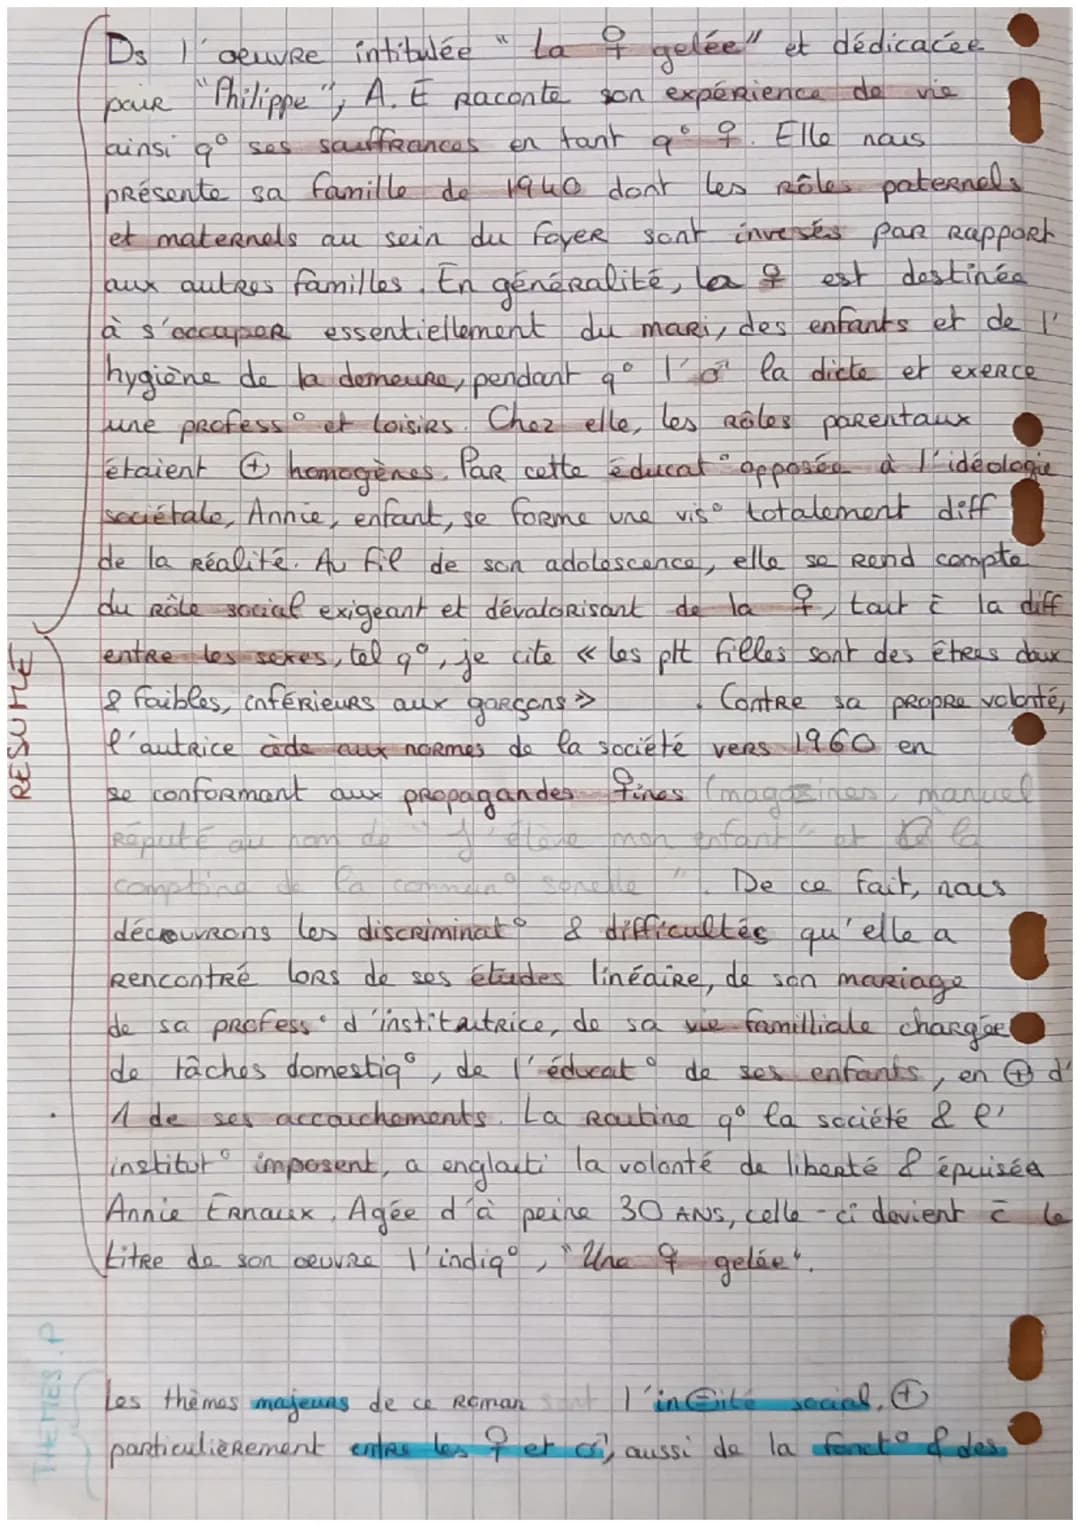 Ds l'oeuvre intitulée "La ♀ gelée" et dédicacée
pour "Philippe", A. E raconte son expérience de vie
ainsi q° ses souffrances en tant q° ♀. Elle nous
présente sa famille de 1940 dont les rôles paternels
et maternels au sein du foyer sont inversés par rapport
aux autres familles. En généralité, la ♀ est destinée
à s'occuper essentiellement du mari, des enfants et de l'
hygiène de la demeure, pendant q° l'♂ la dicte et exerce
une profess° et loisirs. Chez elle, les rôles parentaux
étaient ⊕ homogènes. Par cette éducat° opposée à l'idéologie
sociétale, Annie, enfant, se forme une vis° totalement diff
de la réalité. Au fil de son adolescence, elle se rend compte
du rôle social exigeant et dévalorisant de la ♀, tout c̄ la diff
entre les sexes, tel q°, je cite « les ptt filles sont des êtres doux
& faibles, inférieurs aux garçons » . Contre sa propre volonté,
l'autrice cède aux normes de la société vers 1960 en
se conformant aux propagandes ♀ines (magazines, manuel
réputé au nom de "J'élève mon enfant" et la
comptine de la ". De ce fait, nous
découvrons les discriminat° & difficultés qu'elle a
rencontré lors de ses études linéaire, de son mariage
de sa profess° d'institutrice, de sa vie familliale chargée
de tâches domestiq°, de l'éducat° de ses enfants, en ⊕ d'
1 de ses accouchements. La routine q° la société & l'
institut° imposent, a englouti la volonté de liberté & épuisée
Annie Ernaux. Agée d'à peine 30 ANS, celle-ci devient c̄ le
titre de son oeuvre l'indiq°, "Une ♀ gelée".
RESUMÉ
THEMES.P
Les thèmes majeurs de ce Roman sont l'in⊜ité social, ⊕
particulièrement entre les ♀ et ♂, aussi de la fonct° & des